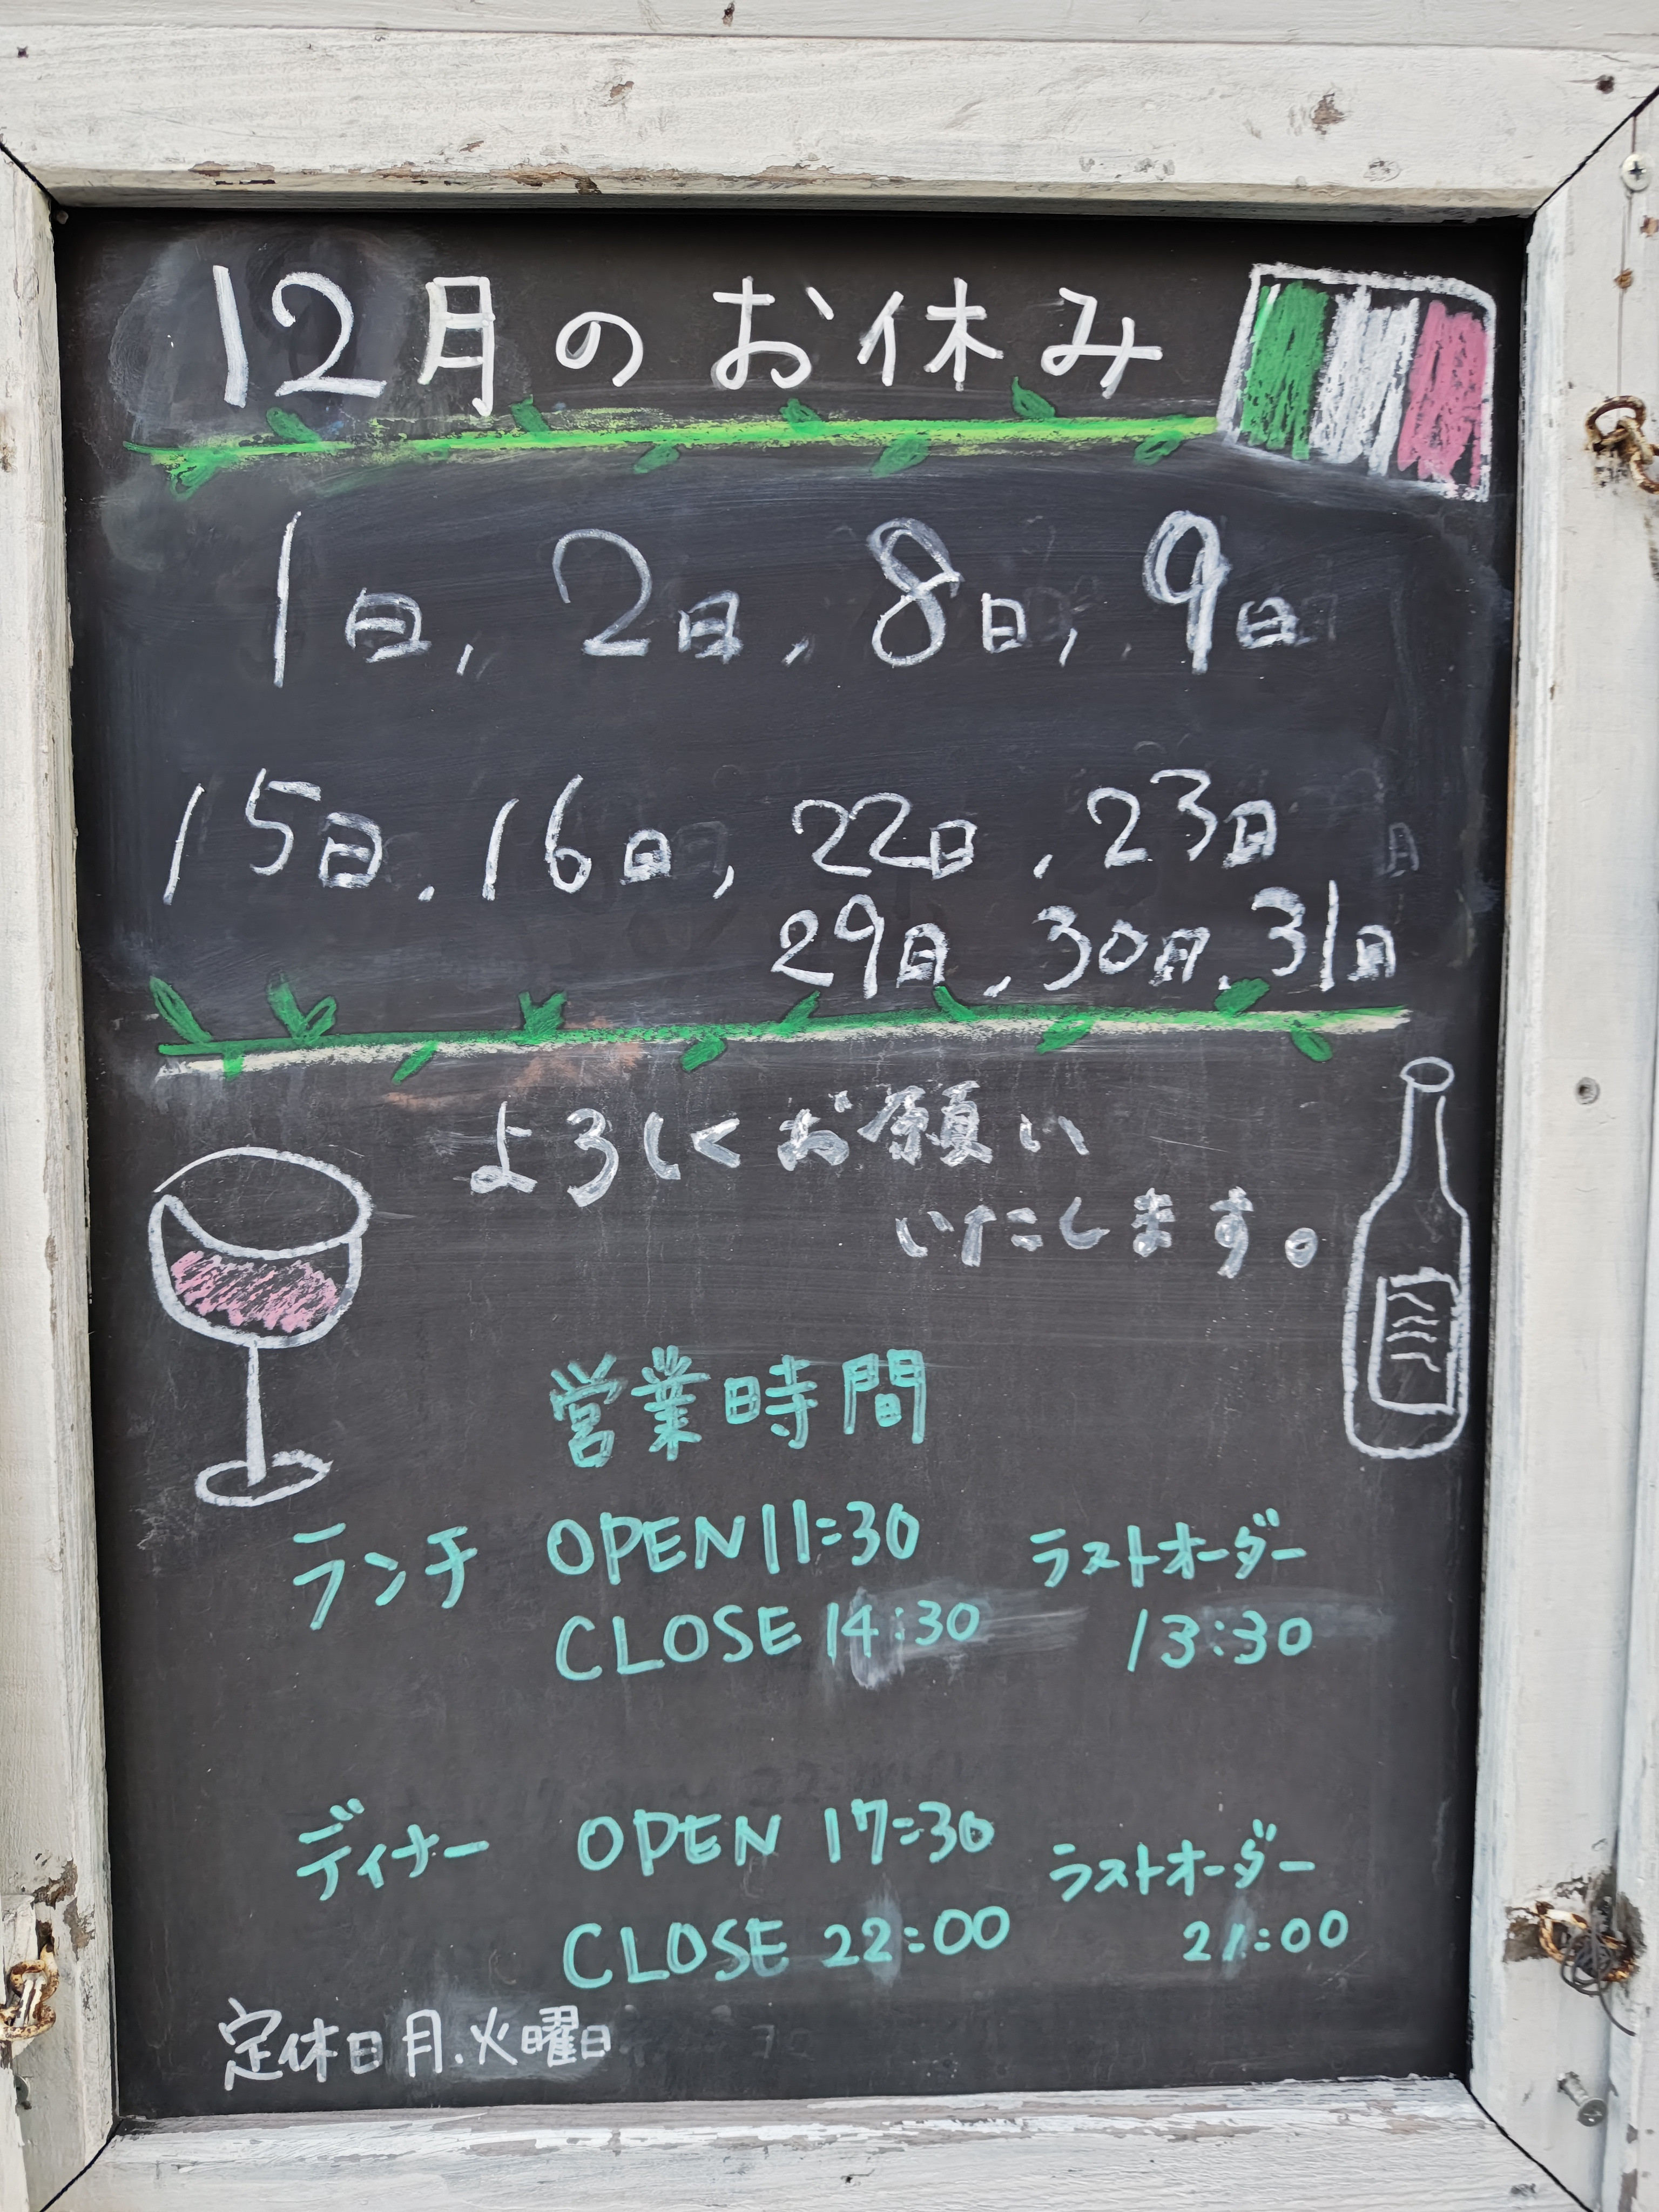 12月のお休み
1日, 2日, 8日, 9日
15日, 16日, 22日, 23日
29日, 30日, 31日
よろしくお願い
いたします。
営業時間
ランチ OPEN 11:30 ラストオーダー
CLOSE 14:30 13:30
ディナー OPEN 17:30 ラストオーダー
CLOSE 22:00 21:00
定休日 月.火曜日